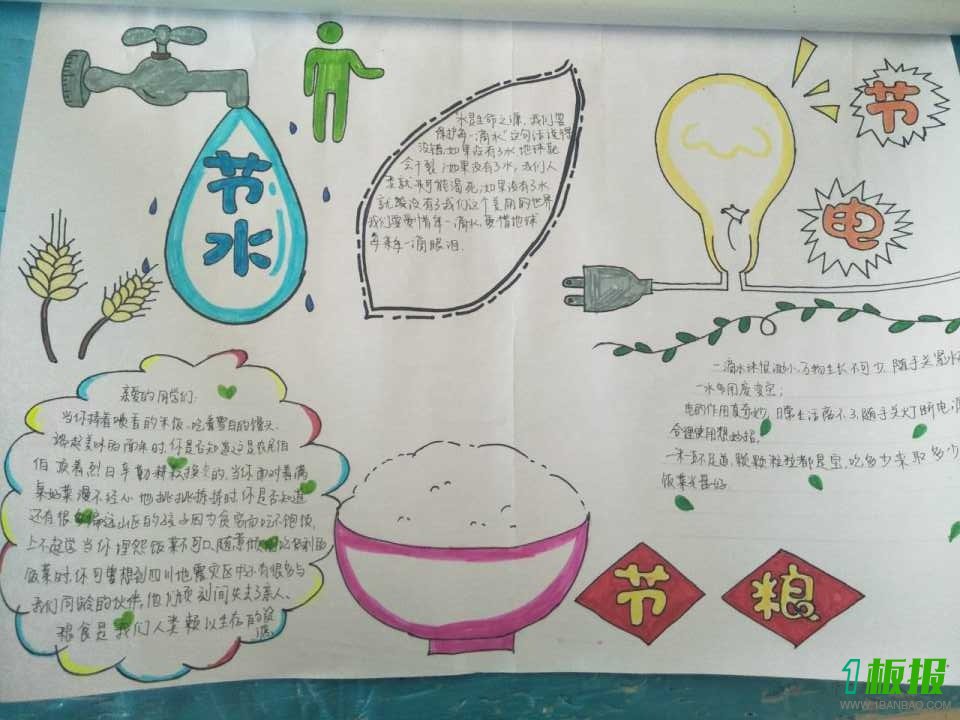 节
水
水是生命之源,我们要
保护每一滴水"这句话说得
没错,如果没有了水,地球就
会干裂;如果没有了水,我们人
类就有可能渴死;如果没有了水
就没有了我们这个美丽的世界
我们要珍惜每一滴水,要惜地球
每一滴眼泪.
节
电
二滴水珠很渺小,万物生长不可少.随手关紧水
一水多用度变宝;
电的作用真奇妙,日常生活离不了.随手关灯断电源
合理使用想妙招.
一米一豆不足道,颗颗粒粒都是宝,吃多少来取多少
饭菜光最好.
亲爱的同学们:
当你捧着喷香的米饭、吃着雪白的馒头、
端起美味的面条时,你是否知道这是农民伯
伯顶着烈日辛勤耕耘换来的,当你面对着满
桌好菜漫不经心地挑挑拣拣时,你是否知道
还有很多偏远山区的孩子因为贫穷而吃不饱饭,
上不起学.当你埋怨饭菜不可口,随意
饭菜时,你可曾想到四川地震灾区中还有很多与
我们同龄的伙伴,他们顷刻间失去了亲人、
粮食是我们人类赖以生存的资
源
节
粮
1板报
WWW.1BANBAO.COM